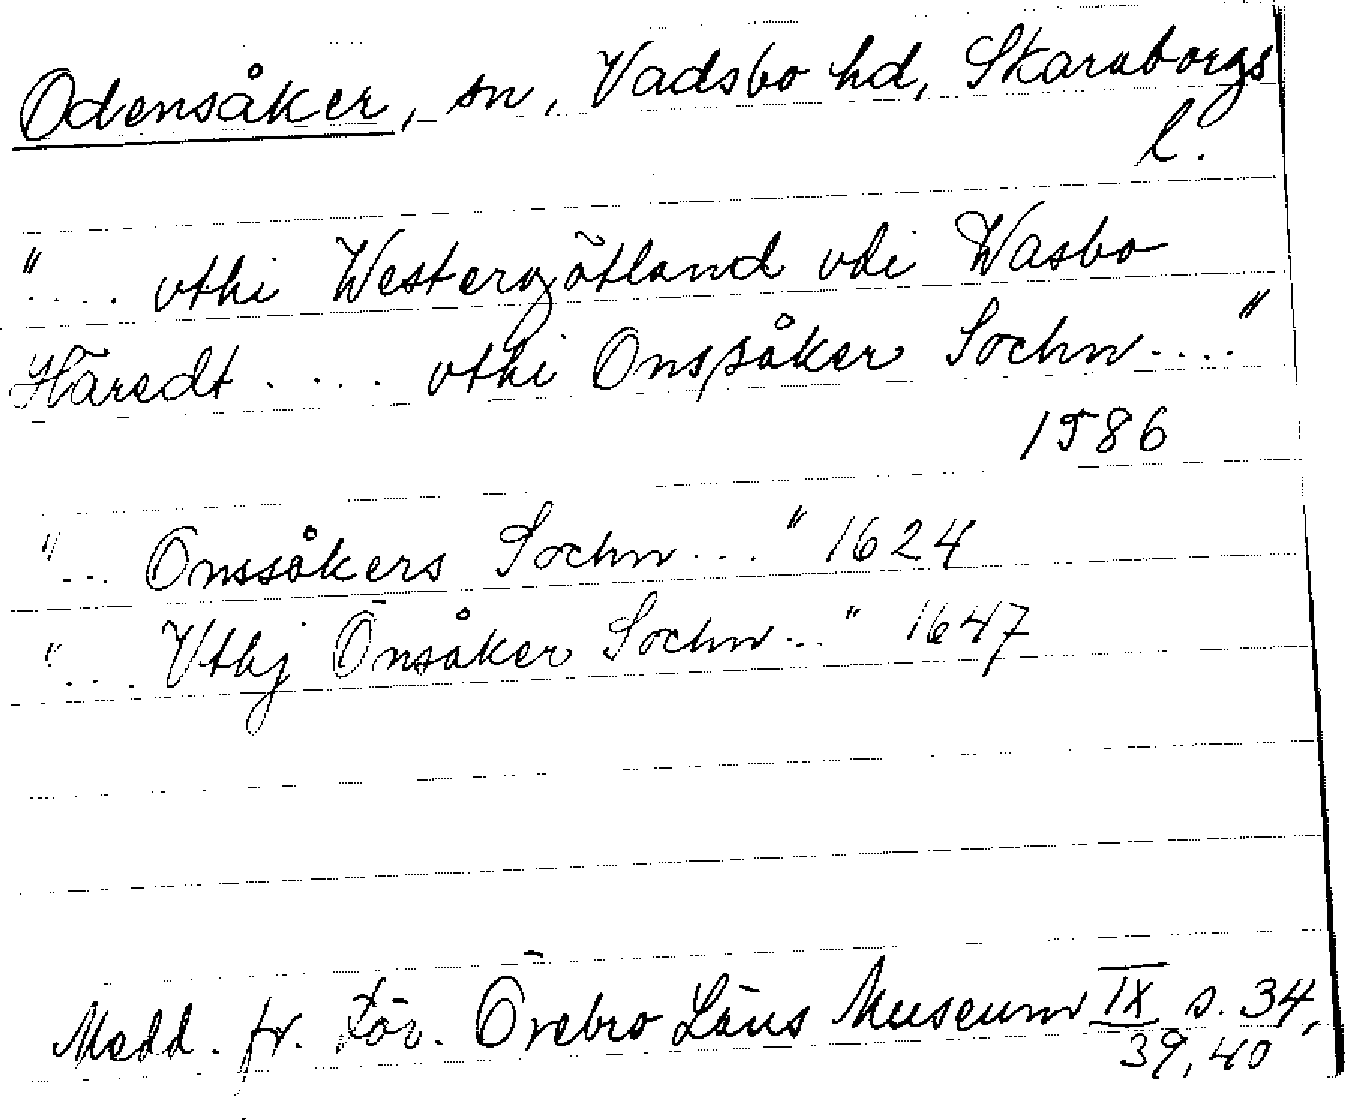 Odensåker, sn, Vadsbo hd, Skaraborgs
l.
".... vthi Westergötland vdi Wasbo
Häredt .... vthi Onssåker Sochn ...."
1586
"... Onssåkers Sochn ..." 1624
"... Vthj Önsåker Sochn ..." 1647
Medd. fr. Fören. Örebro Läns Museum IX s. 34,
39, 40